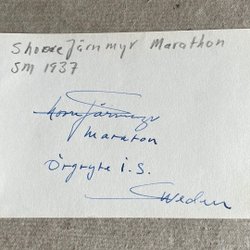 Järnmyr Marathon
SM 1937
Järnmyr
Maraton
Örgryte i.S.
Sweden